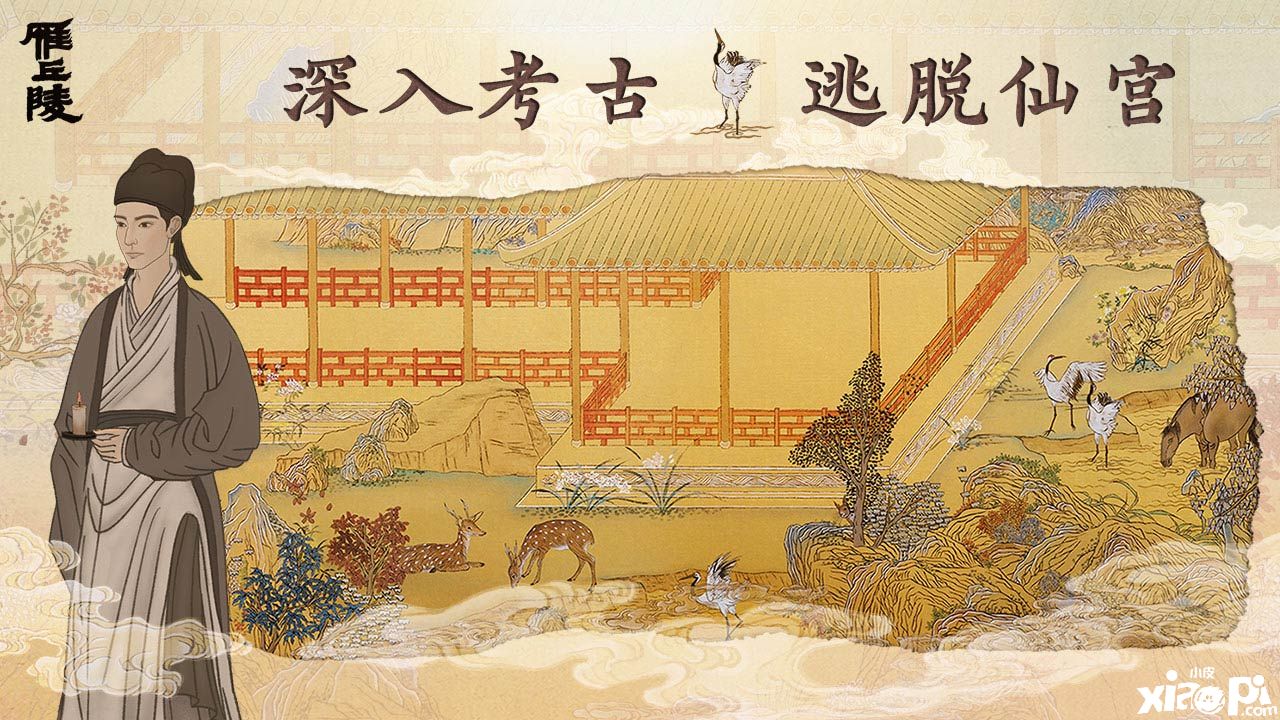 雁丘陵
深入考古 逃脱仙宫
小皮
xiaopi
.com